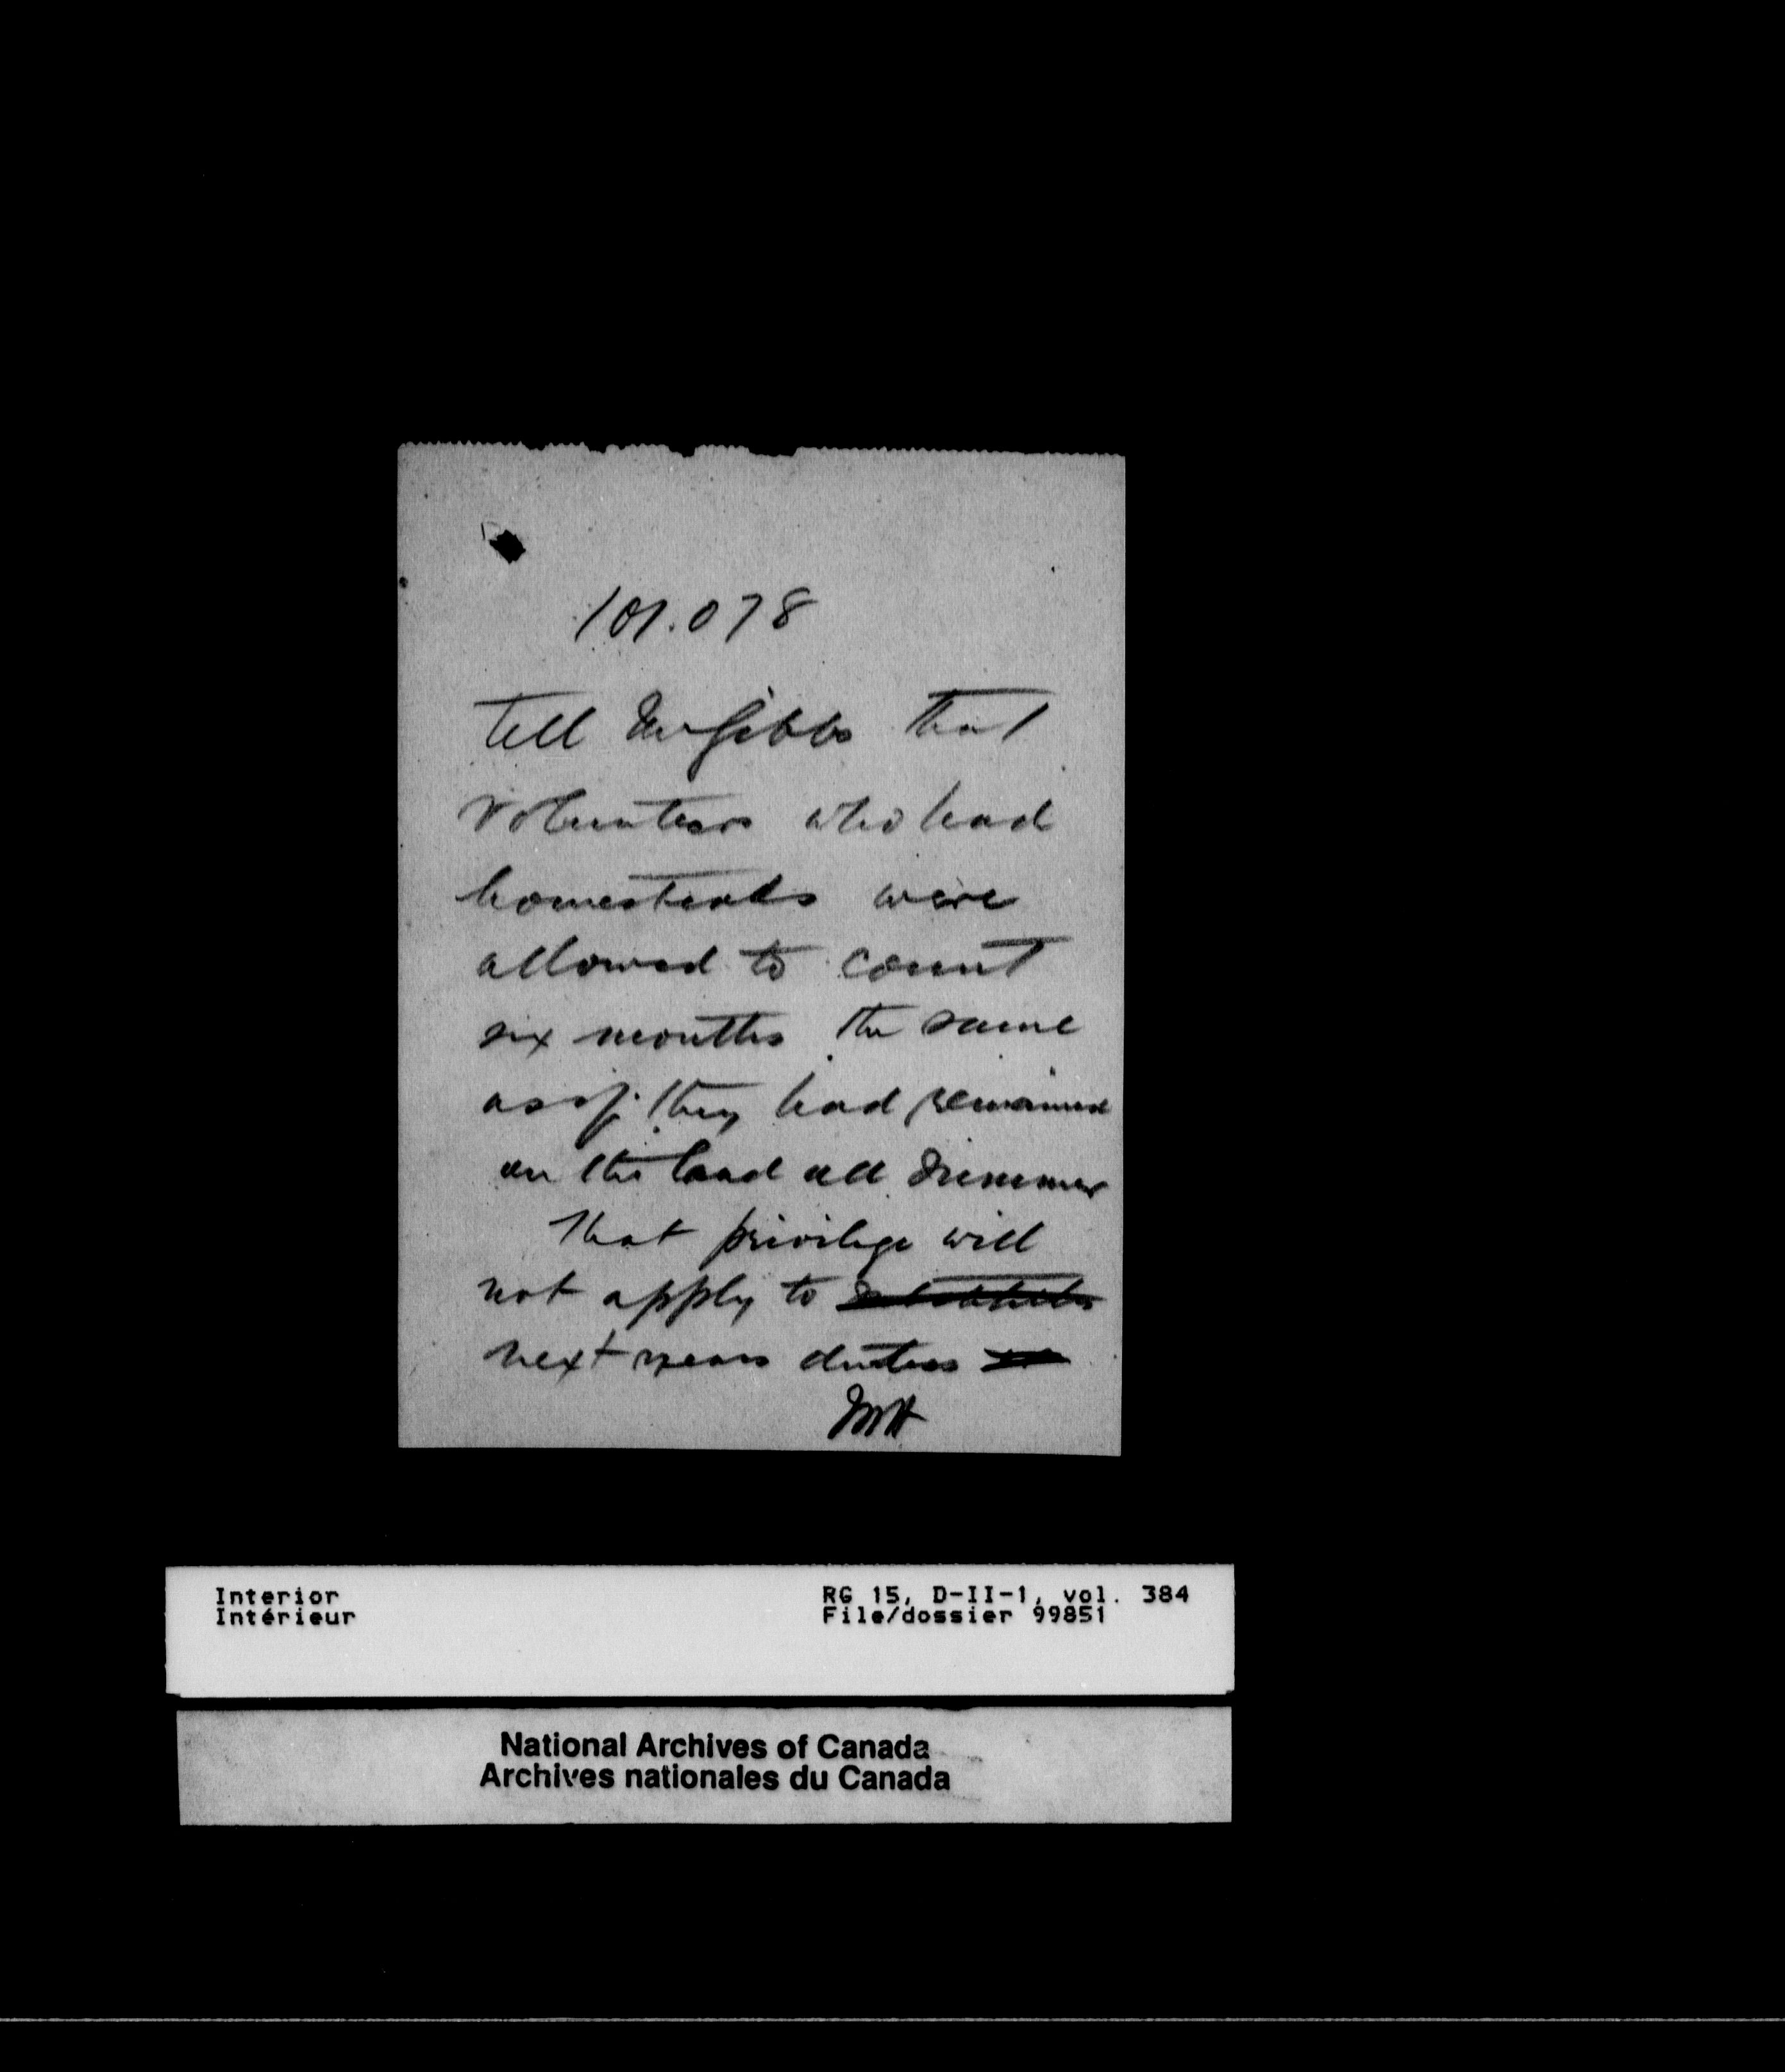 101.078
Tell Mr Gibbs that
Volunteers who had
homesteads were
allowed to count
six months the same
as if they had remained
on the land all summer
That privilege will
not apply to
next years duties
Interior
Intérieur
RG 15, D-II-1, vol. 384
File/dossier 99851
National Archives of Canada
Archives nationales du Canada